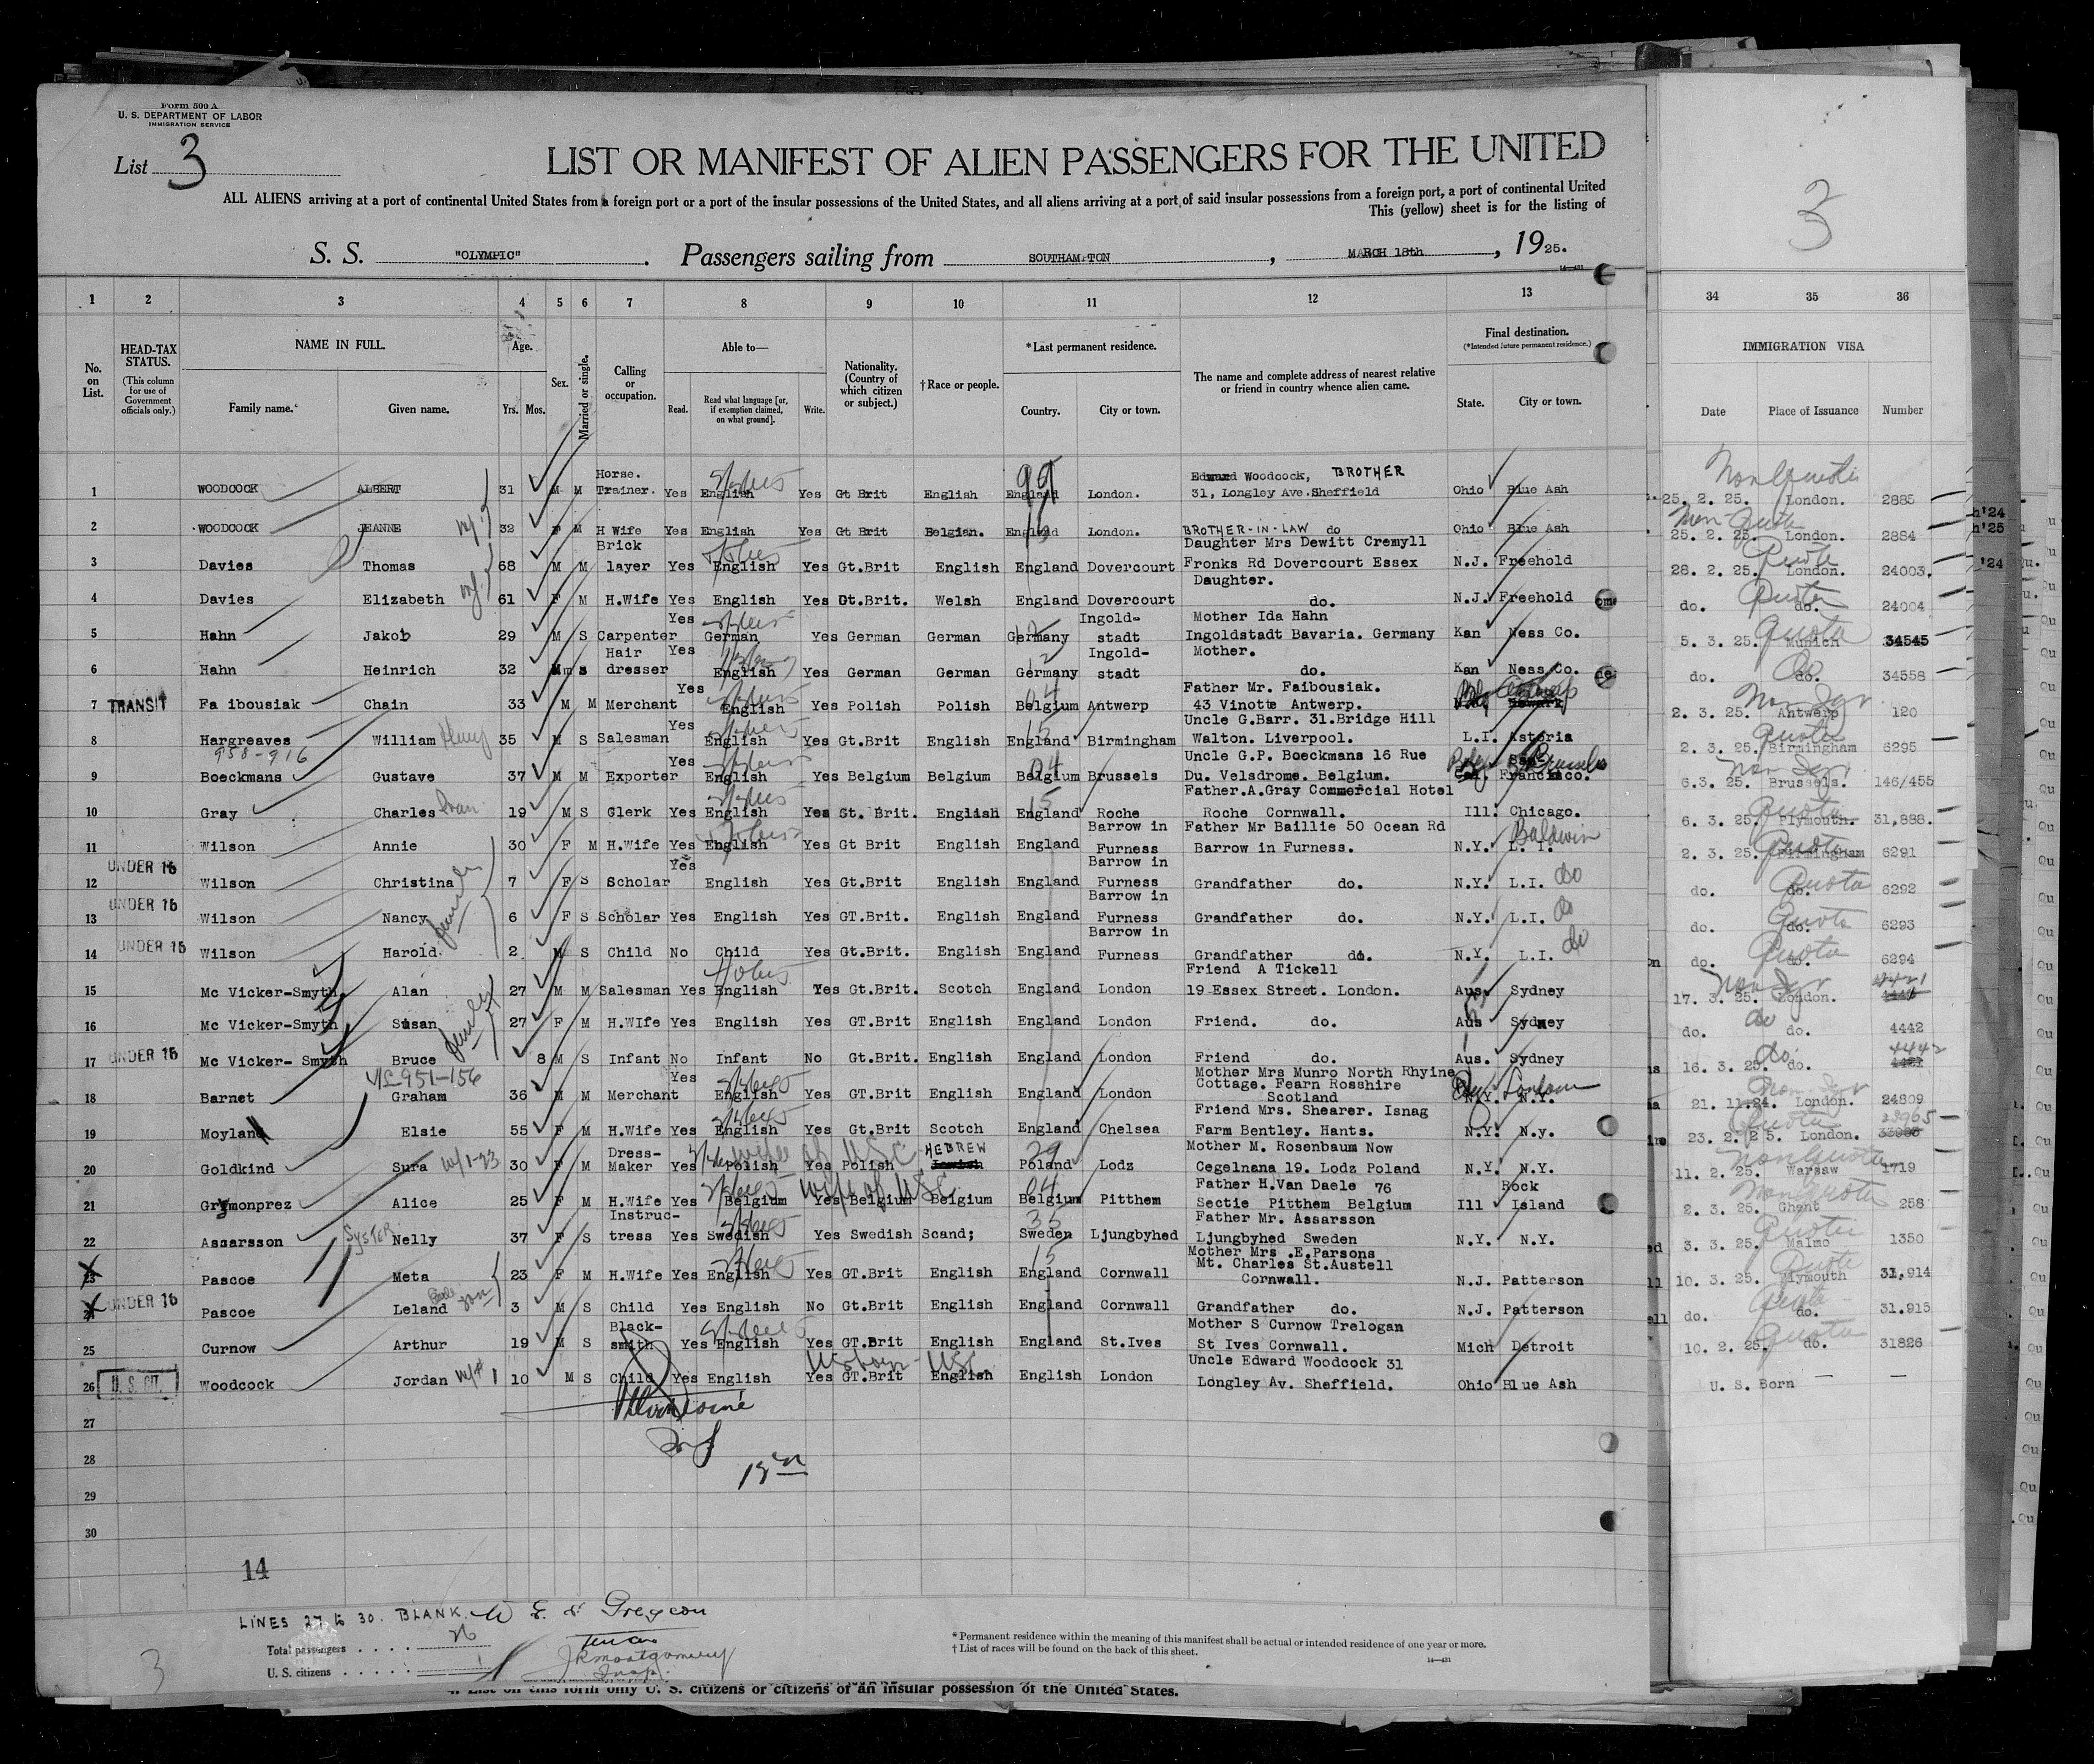 Form 500 A
U. S. DEPARTMENT OF LABOR
IMMIGRATION SERVICE
List 3
LIST OR MANIFEST OF ALIEN PASSENGERS FOR THE UNITED
ALL ALIENS arriving at a port of continental United States from a foreign port or a port of the insular possessions of the United States, and all aliens arriving at a port of said insular possessions from a foreign port, a port of continental United
This (yellow) sheet is for the listing of
3
S. S. "OLYMPIC" . Passengers sailing from SOUTHAMPTON , MARCH 18th , 1925.
1 2 3 4 5 6 7 8 9 10 11 12 13 34 35 36
No. on List.
HEAD-TAX STATUS.
(This column for use of Government officials only.)
NAME IN FULL.
Family name. Given name.
Age.
Yrs. Mos.
Sex.
Married or single.
Calling or occupation.
Able to—
Read. Read what language [or, if exemption claimed, on what ground]. Write.
Nationality. (Country of which citizen or subject.)
†Race or people.
*Last permanent residence.
Country. City or town.
The name and complete address of nearest relative or friend in country whence alien came.
Final destination.
(*Intended future permanent residence.)
State. City or town.
IMMIGRATION VISA
Date Place of Issuance Number
1 WOODCOCK ALBERT 31 M M Horse. Trainer. Yes English Yes Gt Brit English England London. Edward Woodcock, BROTHER 31, Longley Ave.Sheffield Ohio Blue Ash 25. 2. 25. London. 2885
2 WOODCOCK JEANNE 32 F M H Wife Yes English Yes Gt Brit Belgian. England London. BROTHER-IN-LAW do Ohio Blue Ash Non-Quota 25. 2. 25. London. 2884
3 Davies Thomas 68 M M Brick layer Yes English Yes Gt.Brit English England Dovercourt Daughter Mrs Dewitt Cremyll Fronks Rd Dovercourt Essex N.J. Freehold 28. 2. 25. Quota London. 24003.
4 Davies Elizabeth 61 F M H.Wife Yes English Yes Gt.Brit. Welsh England Dovercourt Daughter. do. N.J. Freehold do. Quota do. 24004
5 Hahn Jakob 29 M S Carpenter Yes German Yes German German Germany Ingold- stadt Mother Ida Hahn Ingoldstadt Bavaria. Germany Kan Ness Co. 5. 3. 25. Quota Munich 34545
6 Hahn Heinrich 32 M m s Hair dresser Yes English Yes German German Germany Ingold- stadt Mother. do. Kan Ness Co. do. Do do. 34558
7 TRANSIT Fa ibousiak Chain 33 M M Merchant Yes English Yes Polish Polish Belgium Antwerp Father Mr. Faibousiak. 43 Vinotte Antwerp. Newark 2. 3. 25. Antwerp 120
8 Hargreaves William Henry 35 M S Salesman Yes English Yes Gt.Brit English England Birmingham Uncle G.Barr. 31.Bridge Hill Walton. Liverpool. L.I. Astoria 2. 3. 25. Quota Birmingham 6295
958-916
9 Boeckmans Gustave 37 M M Exporter Yes English Yes Belgium Belgium Belgium Brussels Uncle G.P. Boeckmans 16 Rue Du. Velsdrome. Belgium. Cal. San Francisco. Brussels 6.3. 25. Brussels. 146/455
10 Gray Charles 19 M S Clerk Yes English Yes Gt. Brit. English England Roche Father.A.Gray Commercial Hotel Roche Cornwall. Ill. Chicago. 6. 3. 25. Quota Plymouth. 31,888.
11 Wilson Annie 30 F M H.Wife Yes English Yes Gt Brit English England Barrow in Furness Father Mr Baillie 50 Ocean Rd Barrow in Furness. N.Y. L.I. Baldwin 2. 3. 25. Quota Birmingham 6291
12 UNDER 16 Wilson Christina 7 F S Scholar Yes English Yes Gt.Brit English England Barrow in Furness Grandfather do. N.Y. L.I. do do. Quota do. 6292
13 UNDER 16 Wilson Nancy 6 F S Scholar Yes English Yes GT.Brit. English England Barrow in Furness Grandfather do. N.Y. L.I. do do. Quota do. 6293
14 UNDER 16 Wilson Harold 2 M S Child No Child Yes Gt.Brit. English England Barrow in Furness Grandfather do. N.Y. L.I. do do. Quota do. 6294
15 Mc Vicker-Smyth Alan 27 M M Salesman Yes English Yes Gt.Brit. Scotch England London Friend A Tickell 19 Essex Street. London. Aus. Sydney 17. 3. 25. London. 4441
16 Mc Vicker-Smyth Susan 27 F M H.WIfe Yes English Yes GT.Brit English England London Friend. do. Aus Sydney do. do do. 4442
17 UNDER 16 Mc Vicker- Smyth Bruce 8 M S Infant No Infant No Gt.Brit. English England London Friend do. Aus. Sydney 16. 3. 25. do. do. 4443
V/L951-156
18 Barnet Graham 36 M M Merchant Yes English Yes GT.Brit English England London Mother Mrs Munro North Rhyine Cottage. Fearn Rosshire Scotland N.Y. N.Y. London 21. 11.24. London. 24809
19 Moyland Elsie 55 F M H.Wife Yes English Yes Gt.Brit Scotch England Chelsea Friend Mrs. Shearer. Isnag Farm Bentley. Hants. N.Y. N.y. 23. 2. 25. Quota London. 23965
20 Goldkind Sura 30 F M Dress- Maker Yes Polish wife of USC Yes Polish HEBREW Poland Lodz Mother M. Rosenbaum Now Cegelnana 19. Lodz Poland N.Y. N.Y. 11. 2. 25. Non Quota Warsaw 1719
21 Grymonprez Alice 25 F M H.Wife Yes Belgium wife of USC Yes Belgium Belgium Belgium Pitthem Father H.Van Daele 76 Sectie Pitthem Belgium Ill Rock Island 2. 3. 25. Non Quota Ghent 258
22 Assarsson SYSTER Nelly 37 F S Instruc- tress Yes Swedish Yes Swedish Scand; Sweden Ljungbyhed Father Mr. Assarsson Ljungbyhed Sweden N.Y. N.Y. 3. 3. 25. Quota Malmo 1350
23 Pascoe Meta 23 F M H.Wife Yes English Yes GT.Brit English England Cornwall Mother Mrs .E.Parsons Mt. Charles St.Austell Cornwall. N.J. Patterson 10. 3. 25. Quota Plymouth 31,914
24 UNDER 16 Pascoe Leland son 3 M S Child Yes English No Gt.Brit English England Cornwall Grandfather do. N.J. Patterson do. Quota do. 31.915
25 Curnow Arthur 19 M S Black- smith Yes English Yes GT.Brit English England St.Ives Mother S Curnow Trelogan St Ives Cornwall. Mich Detroit 10. 2. 25. Quota do. 31826
26 U. S. CIT. Woodcock Jordan 10 M S Child Yes English Yes GT.Brit US born- USC English English London Uncle Edward Woodcock 31 Longley Av. Sheffield. Ohio Blue Ash U. S. Born — —
27
28
29
30
14
LINES 27 to 30. BLANK.
Total passengers . . . . 26
U. S. citizens . . . . . 1
JRMontgomery
Insp.
3
* Permanent residence within the meaning of this manifest shall be actual or intended residence of one year or more.
† List of races will be found on the back of this sheet.
14—431
List on this form only U. S. citizens or citizens of an insular possession of the United States.